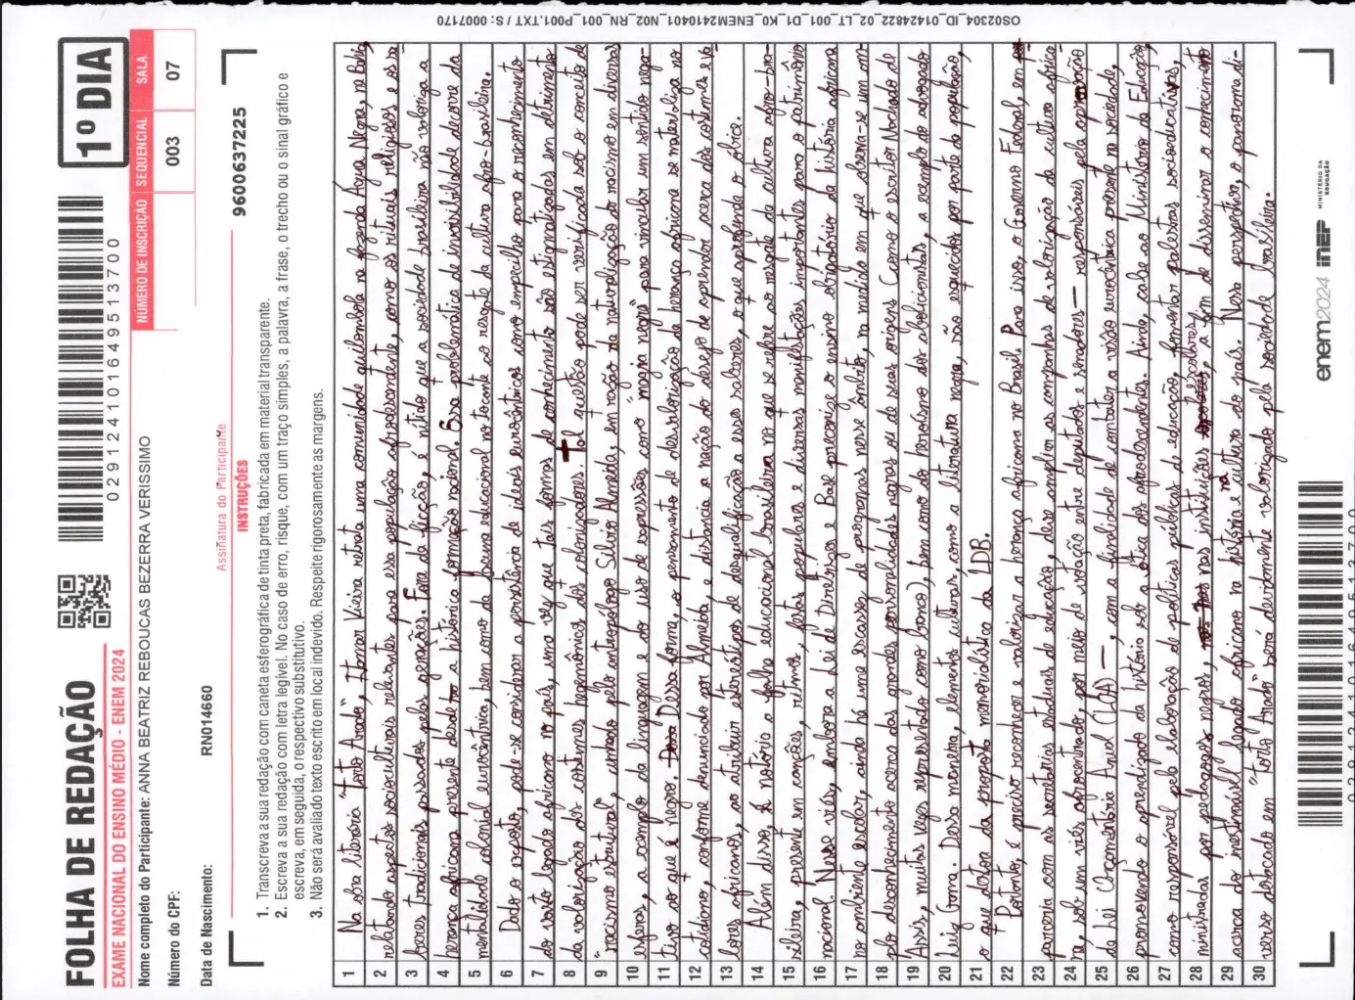 FOLHA DE REDAÇÃO
EXAME NACIONAL DO ENSINO MÉDIO - ENEM 2024
029124101649513700
1º DIA
Nome completo do Participante: ANNA BEATRIZ REBOUCAS BEZERRA VERISSIMO
Número do CPF:
Data de Nascimento: RN014660
NÚMERO DE INSCRIÇÃO SEQUENCIAL SALA
003 07
Assinatura do Participante
9600637225
INSTRUÇÕES
1. Transcreva a sua redação com caneta esferográfica de tinta preta, fabricada em material transparente.
2. Escreva a sua redação com letra legível. No caso de erro, risque, com um traço simples, a palavra, a frase, o trecho ou o sinal gráfico e
escreva, em seguida, o respectivo substitutivo.
3. Não será avaliado texto escrito em local indevido. Respeite rigorosamente as margens.
1 Na obra literária "Torto Arado", Itamar Vieira retrata uma comunidade quilombola na fazenda Água Negra, na Bahia,
2 relatando aspectos socioculturais relevantes para essa população afrodescendente, como os rituais religiosos e os sa-
3 beres tradicionais passados pelas gerações. Fora da ficção, é nítido que a sociedade brasileira não valoriza a
4 herança africana presente desde a histórica formação nacional. Essa problemática de invisibilidade decorre da
5 mentalidade colonial eurocêntrica, bem como da lacuna educacional no tocante ao resgate da cultura afro-brasileira.
6 Dado o exposto, pode-se considerar a persistência de ideais eurocêntricos como empecilho para o reconhecimento
7 do vasto legado africano no país, uma vez que tais formas de conhecimento são estigmatizadas em detrimento
8 da valorização dos costumes hegemônicos dos colonizadores. Tal questão pode ser verificada sob o conceito de
9 "racismo estrutural", cunhado pelo antropólogo Silvio Almeida, em razão da naturalização do racismo em diversas
10 esferas, a exemplo da linguagem e do uso de expressões como "magia negra" para vincular um sentido nega-
11 tivo ao que é negro. Dessa forma, o pensamento de desvalorização da herança africana se materializa no
12 cotidiano, conforme denunciado por Almeida, e distancia a nação do desejo de aprender acerca dos costumes e va-
13 lores africanos, ao atribuir estereótipos de desqualificação a esses saberes, o que aprofunda o óbice.
14 Além disso, é notório a falha educacional brasileira no que se refere ao resgate da cultura afro-bra-
15 sileira, presente em canções, ritmos, festas populares e diversas manifestações importantes para o patrimônio
16 nacional. Nesse viés, embora a Lei de Diretrizes e Base preconize o ensino obrigatório da história africana
17 no ambiente escolar, ainda há uma escassez de programas nesse âmbito, na medida em que observa-se um am-
18 plo desconhecimento acerca das grandes personalidades negras ou de suas origens (como o escritor Machado de
19 Assis, muitas vezes representado como branco), bem como do heroísmo dos abolicionistas, a exemplo do advogado
20 Luiz Gama. Dessa maneira, elementos culturais, como a literatura negra, são esquecidos por parte da população,
21 o que destoa da proposta memorialística da LDB.
22 Portanto, é preciso reconhecer e valorizar a herança africana no Brasil. Para isso, o Governo Federal, em
23 parceria com as secretarias estaduais de educação, deve ampliar as campanhas de valorização da cultura africa-
24 na, sob um viés afrocentrado, por meio de votação entre deputados e senadores — responsáveis pela aprovação
25 da Lei Orçamentária Anual (LOA) —, com a finalidade de combater a visão eurocêntrica presente na sociedade,
26 promovendo o aprendizado da história sob a ótica dos afrodescendentes. Ainda, cabe ao Ministério da Educação,
27 como responsável pela elaboração de políticas públicas de educação, fomentar palestras socioeducativas,
28 ministradas por pedagogos negros, nas instituições escolares, a fim de disseminar o conhecimento
29 acerca do inestimável legado africano na história e na cultura do país. Nessa perspectiva, o panorama di-
30 verso destacado em "Torto Arado" será devidamente valorizado pela sociedade brasileira.
enem2024 inep MINISTÉRIO DA EDUCAÇÃO
029124101649513700